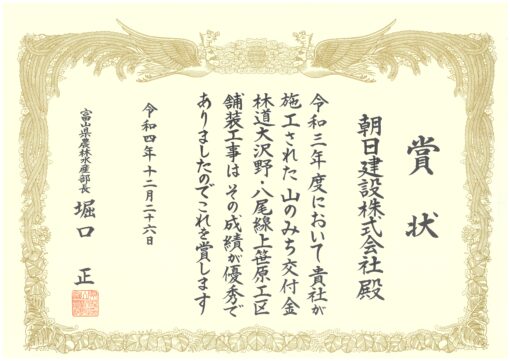 賞状
朝日建設株式会社殿
令和三年度において貴社が
施工された山のみち交付金
林道大沢野・八尾線上笹原工区
舗装工事は その成績が優秀で
ありましたのでこれを賞します
令和四年十二月二十六日
富山県農林水産部長 堀口 正